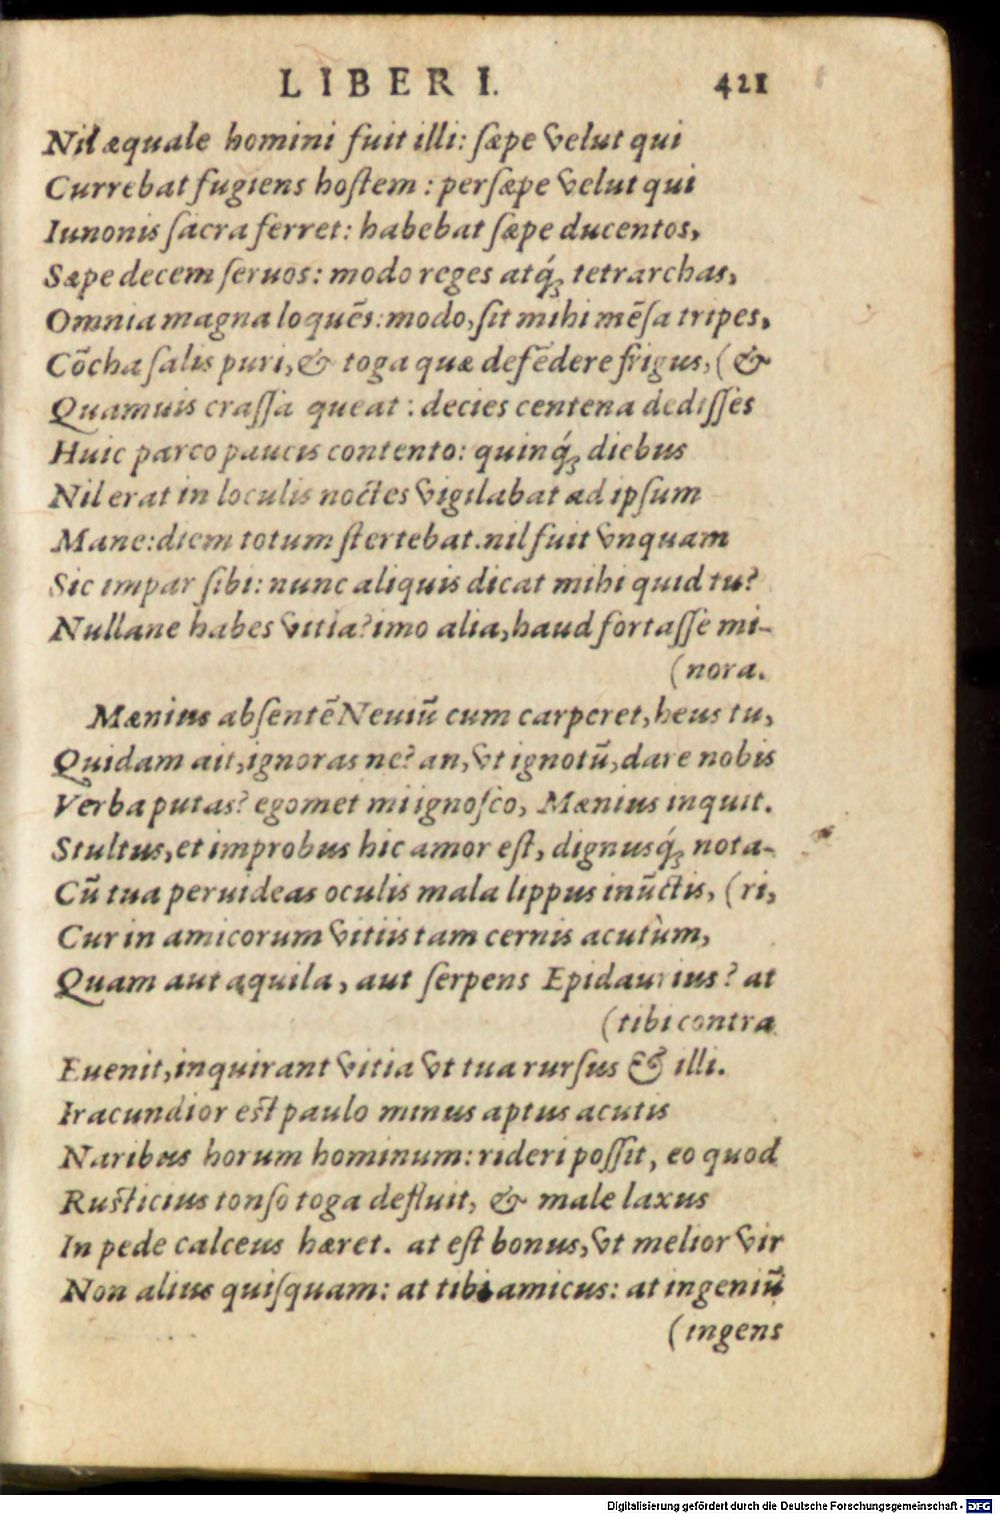 LIBER I. 421
Nil æquale homini fuit illi: sæpe velut qui
Currebat fugiens hostem: persæpe velut qui
Iunonis sacra ferret: habebat sæpe ducentos,
Sæpe decem seruos: modo reges atq́ꝫ tetrarchas,
Omnia magna loquẽs: modo, sit mihi mẽsa tripes,
Cõcha salis puri, & toga quæ defẽdere frigus, (&
Quamuis crassa queat: decies centena dedisses
Huic parco paucis contento: quinq́ꝫ diebus
Nil erat in loculis noctes vigilabat ad ipsum
Mane: diem totum stertebat. nil fuit vnquam
Sic impar sibi: nunc aliquis dicat mihi quid tu?
Nullane habes vitia? imo alia, haud fortasse mi-
(nora.
Mænius absentẽ Neuiũ cum carperet, heus tu,
Quidam ait, ignoras ne? an, vt ignotũ, dare nobis
Verba putas? egomet mi ignosco, Mænius inquit.
Stultus, et improbus hic amor est, dignusq́ꝫ nota-
Cũ tua peruideas oculis mala lippus inũctis, (ri,
Cur in amicorum vitiis tam cernis acutùm,
Quam aut aquila, aut serpens Epidaurius? at
(tibi contra
Euenit, inquirant vitia vt tua rursus & illi.
Iracundior est paulo minus aptus acutis
Naribus horum hominum: rideri possit, eo quod
Rusticius tonso toga defluit, & male laxus
In pede calceus hæret. at est bonus, vt melior vir
Non alius quisquam: at tibi amicus: at ingeniũ
(ingens
Digitalisierung gefördert durch die Deutsche Forschungsgemeinschaft - DFG